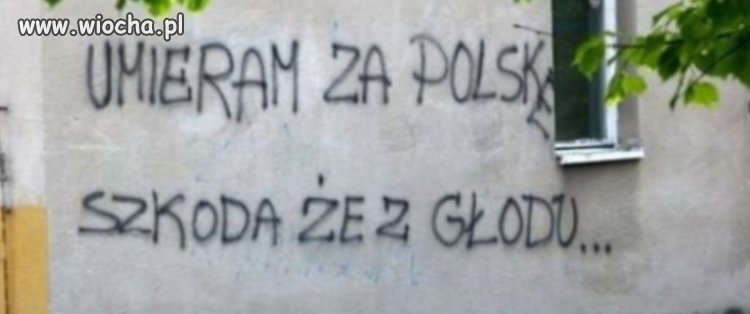 www.wiocha.pl
UMIERAM ZA POLSKĘ
SZKODA ŻE Z GŁODU...